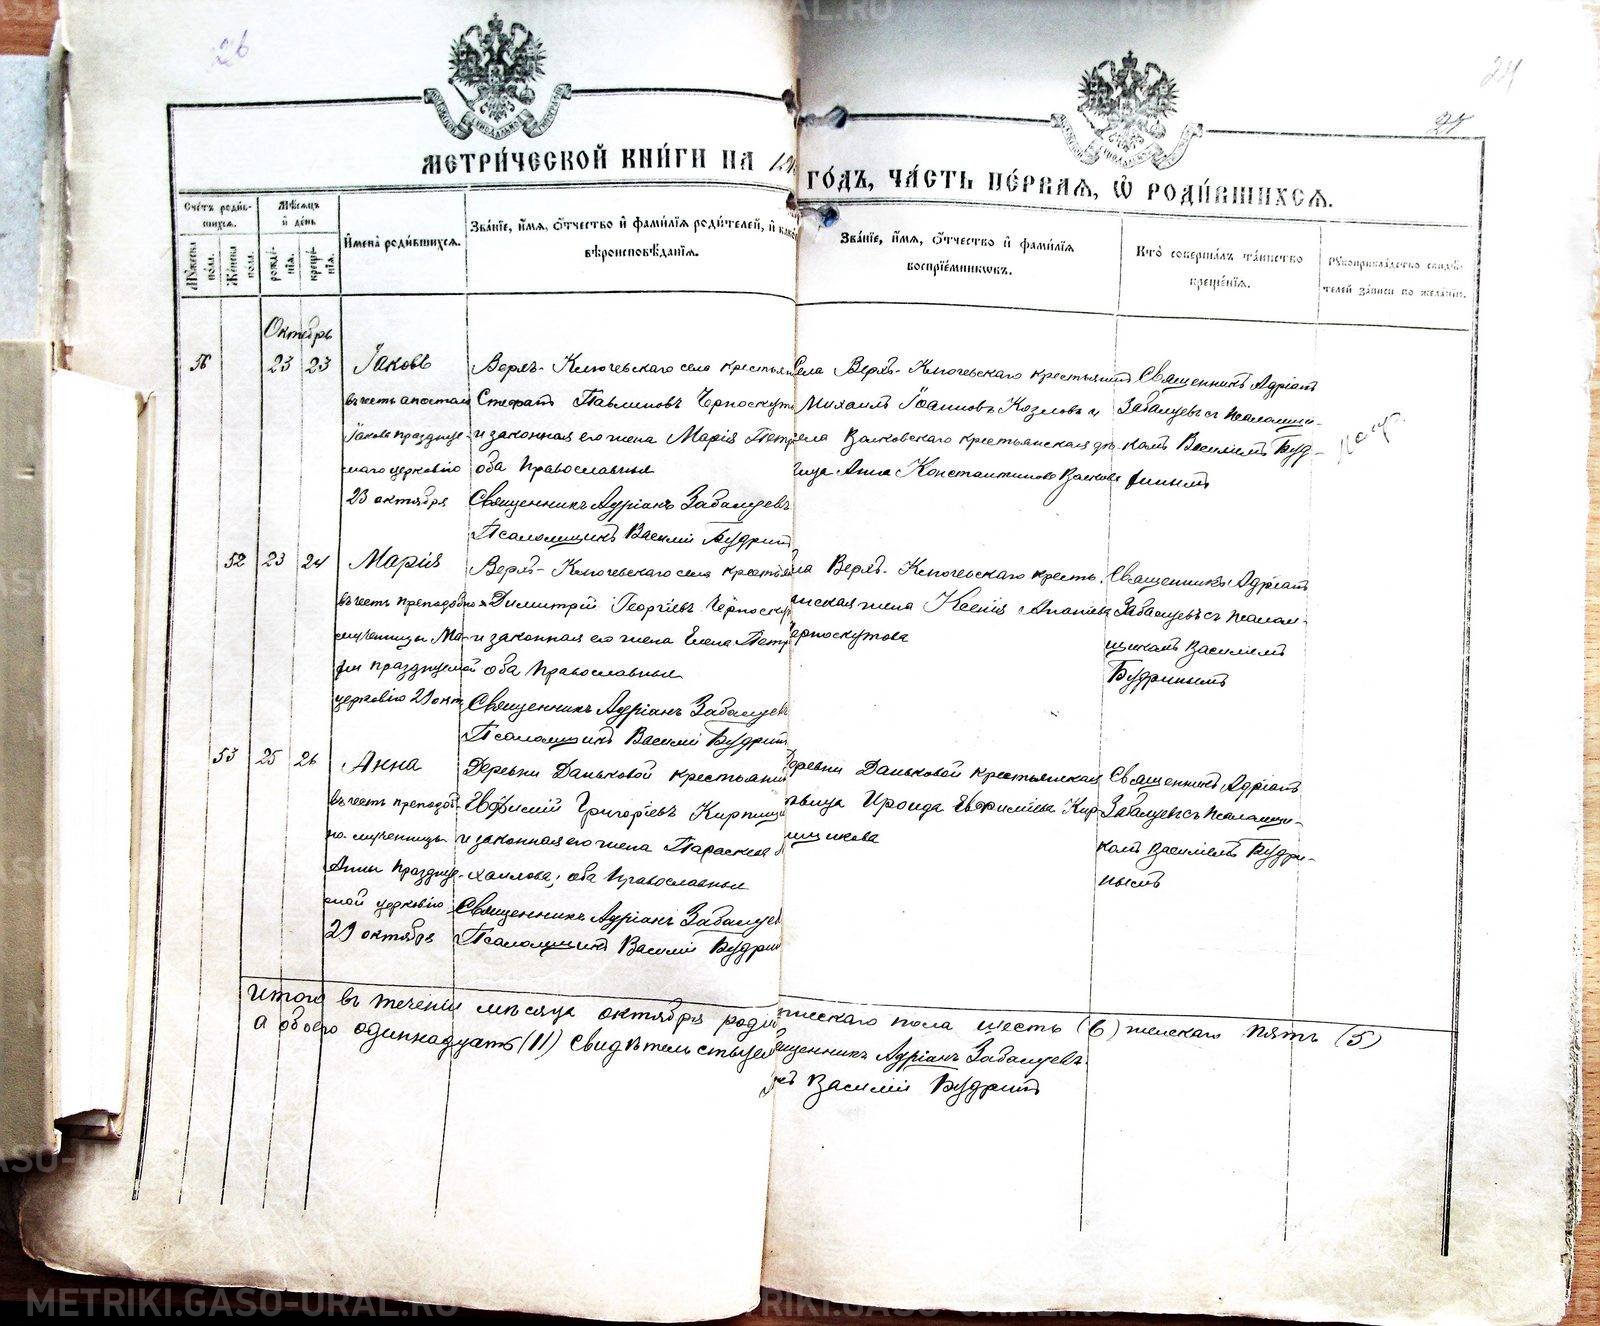 METRIKI.GASO-URAL.RU
26
24
27
МЕТРИ́ЧЕСКОЙ КНИ́ГИ НА
ГО́ДЪ, ЧА́СТЬ ПЕ́РВАЯ, Ѽ РОДИ́ВШИХСЯ.
Сче́тъ роди́в-
шихся.
Му́жеска пола.
Же́нска пола.
Мѣ́сяцъ
и҆ де́нь
рожде́-
нїя.
креще́-
нїя.
И҆мена̀ роди́вшихся.
Зва́нїе, и҆́мя, ѻ҆́тчество и҆ фами́лїя роди́телей, и҆ како́
вѣроисповѣ́данїя.
Зва́нїе, и҆́мя, ѻ҆́тчество и҆ фами́лїя
воспрїе́мникѡвъ.
Кто̀ соверша́лъ та́инство
креще́нїя.
Рукоприкла́дство свидѣ́-
телей за́писи по жела́нїю.
Октябрь
56 23 23 Іаковъ
въ честь апостола
Іакова празднуе-
маго церковію
23 октября
Верхъ-Ключевскаго села крестьян
Стефанъ Павлиновъ Черноскут
и законная его жена Марія Петр
оба православные
Священникъ Адріанъ Забалуевъ
Псаломщикъ Василій Будрин
Села Верхъ-Ключевскаго крестьянинъ
Михаилъ Іоанновъ Козловъ и
села Волковскаго крестьянская дѣ
вица Анна Константинова Волкова
Священникъ Адріанъ
Забалуевъ съ псаломщи-
комъ Василіемъ Буд-
ринымъ
52 23 24 Марія
въ честь преподобно
мученицы Ма-
ріи празднуемой
церковію 29 окт
Верхъ-Ключевскаго села крестьян
Димитрій Георгіевъ Черноскут
и законная его жена Елена Петр
оба православные
Священникъ Адріанъ Забалуев
Псаломщикъ Василій Будрин
ла Верхъ-Ключевскаго кресть
янская жена Ксенія Ананіева
Черноскутова
Священникъ Адріанъ
Забалуевъ съ псалом-
щикомъ Василіемъ
Будринымъ
53 25 26 Анна
въ честь преподоб-
но мученицы
Анны празднуе-
мой церковію
29 октября
Деревни Даньковой крестьянин
Евфимій Григоріевъ Кирпищи
и законная его жена Параскева
хаилова, оба православные
Священникъ Адріанъ Забалуев
Псаломщикъ Василій Будрин
Деревни Даньковой крестьянская
дѣвица Ироида Евфиміева Кир
пищикова
Священникъ Адріанъ
Забалуевъ съ псаломщи-
комъ Василіемъ Будри-
нымъ
Итого въ теченіи мѣсяца октября роди
жескаго пола шесть (6) женскаго пять (5)
а обоего одиннадцать (11) Свидѣтельствуем
ященникъ Адріанъ Забалуевъ
къ Василій Будринъ
METRIKI.GASO-URAL.RU